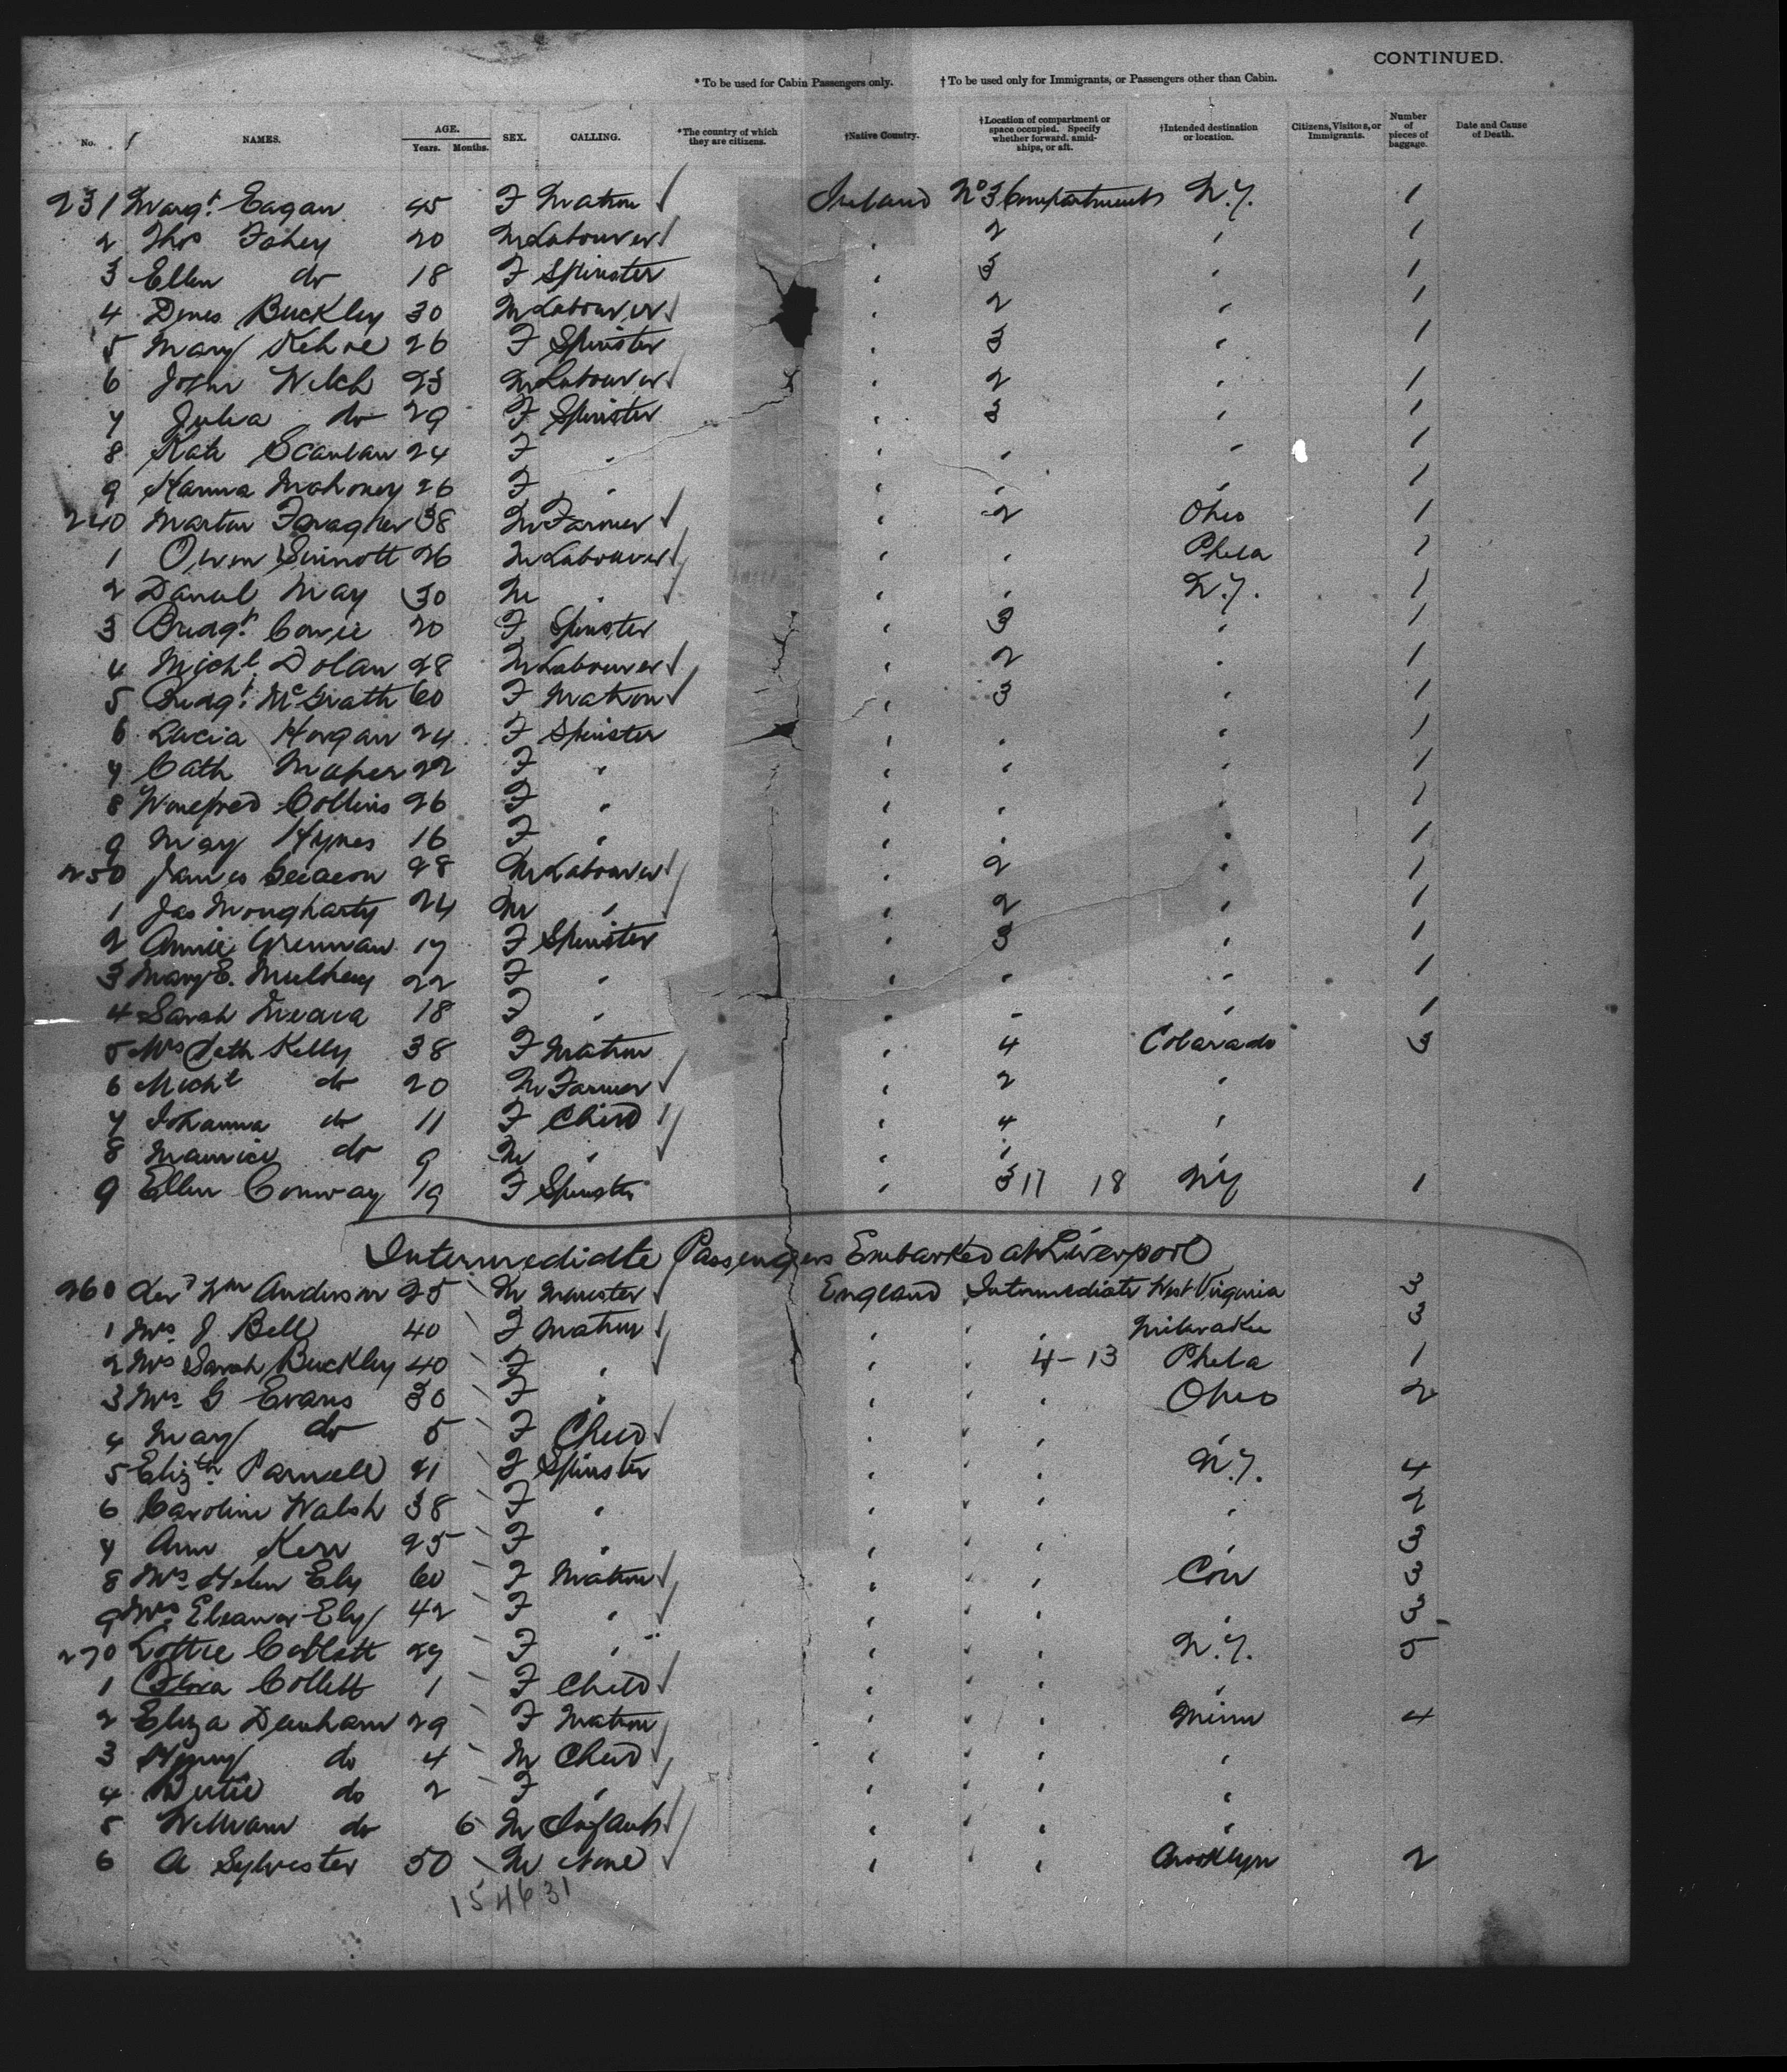 CONTINUED.
* To be used for Cabin Passengers only. † To be used only for Immigrants, or Passengers other than Cabin.
No. NAMES. AGE. Years. Months. SEX. CALLING. *The country of which they are citizens. †Native Country. †Location of compartment or space occupied. Specify whether forward, amidships, or aft. †Intended destination or location. Citizens, Visitors, or Immigrants. Number of pieces of baggage. Date and Cause of Death.
231 Margt. Eagan 45 F Matron Ireland No 3 Compartment N.Y. 1
2 Thos Fahey 20 M Labourer " 2 " 1
3 Ellen do 18 F Spinster " 3 " 1
4 Denis Buckley 30 M Labourer " 2 " 1
5 Mary Kehoe 26 F Spinster " 3 " 1
6 John Welch 23 M Labourer " 2 " 1
7 Julia do 29 F Spinster " 3 " 1
8 Kate Scanlan 24 F " " " " 1
9 Hanna Mahoney 26 F " " " " 1
240 Martin Faragher 38 M Farmer " 2 Ohio 1
1 Owen Sinnott 26 M Labourer " " Phila 1
2 Daniel May 30 M " " " N.Y. 1
3 Bridgt. 20 F Spinster " 3 " 1
4 Michl. Dolan 28 M Labourer " 2 " 1
5 Bridgt. McGrath 60 F Matron " 3 " 1
6 Lucia Horgan 24 F Spinster " " " 1
7 Cath Maher 22 F " " " " 1
8 Winefred Collins 26 F " " " " 1
9 May Hynes 16 F " " " " 1
250 James 28 M Labourer " 2 " 1
1 Jas Mougharty 24 M " " 2 " 1
2 Annie Grennan 17 F Spinster " 3 " 1
3 Mary E. Mulhey 22 F " " " " 1
4 Sarah Meara 18 F " " " " 1
5 Mrs Cath Kelly 38 F Matron " 4 Colarado 3
6 Michl do 20 M Farmer " 2 "
7 Johanna do 11 F Child " 4 "
8 Maurice do 9 M " " " "
9 Ellen Conway 19 F Spinster " 3 17 18 NY 1
Intermediate Passengers Embarked at Liverpool
260 Revd Wm Anderson 25 M Minister England Intermediate West Virginia 3
1 Mrs. J Bell 40 F Matron " " " Milwakee 3
2 Mrs Sarah Buckley 40 F " " " 4-13 Phila 1
3 Mrs. G Evans 30 F " " " " Ohio 2
4 May do 5 F Child " " " "
5 Elizth. Parnell 21 F Spinster " " " N.Y. 4
6 Caroline Walsh 38 F " " " " " 2
7 Ann Kerr 25 F " " " " " 3
8 Mrs. Helen Ely 60 F Matron " " " Con 3
9 Mrs. Eleanor Ely 42 F " " " " " 3
270 Lottie Collett 29 F " " " " N.Y. 5
1 Flora Collett 1 F Child " " " "
2 Eliza Denham 29 F Matron " " " Minn 4
3 Henry do 4 M Child " " " "
4 Bertie do 2 F " " " " "
5 William do 6 M Infant " " " "
6 A Sylvester 50 M None " " " Brooklyn 2
154631